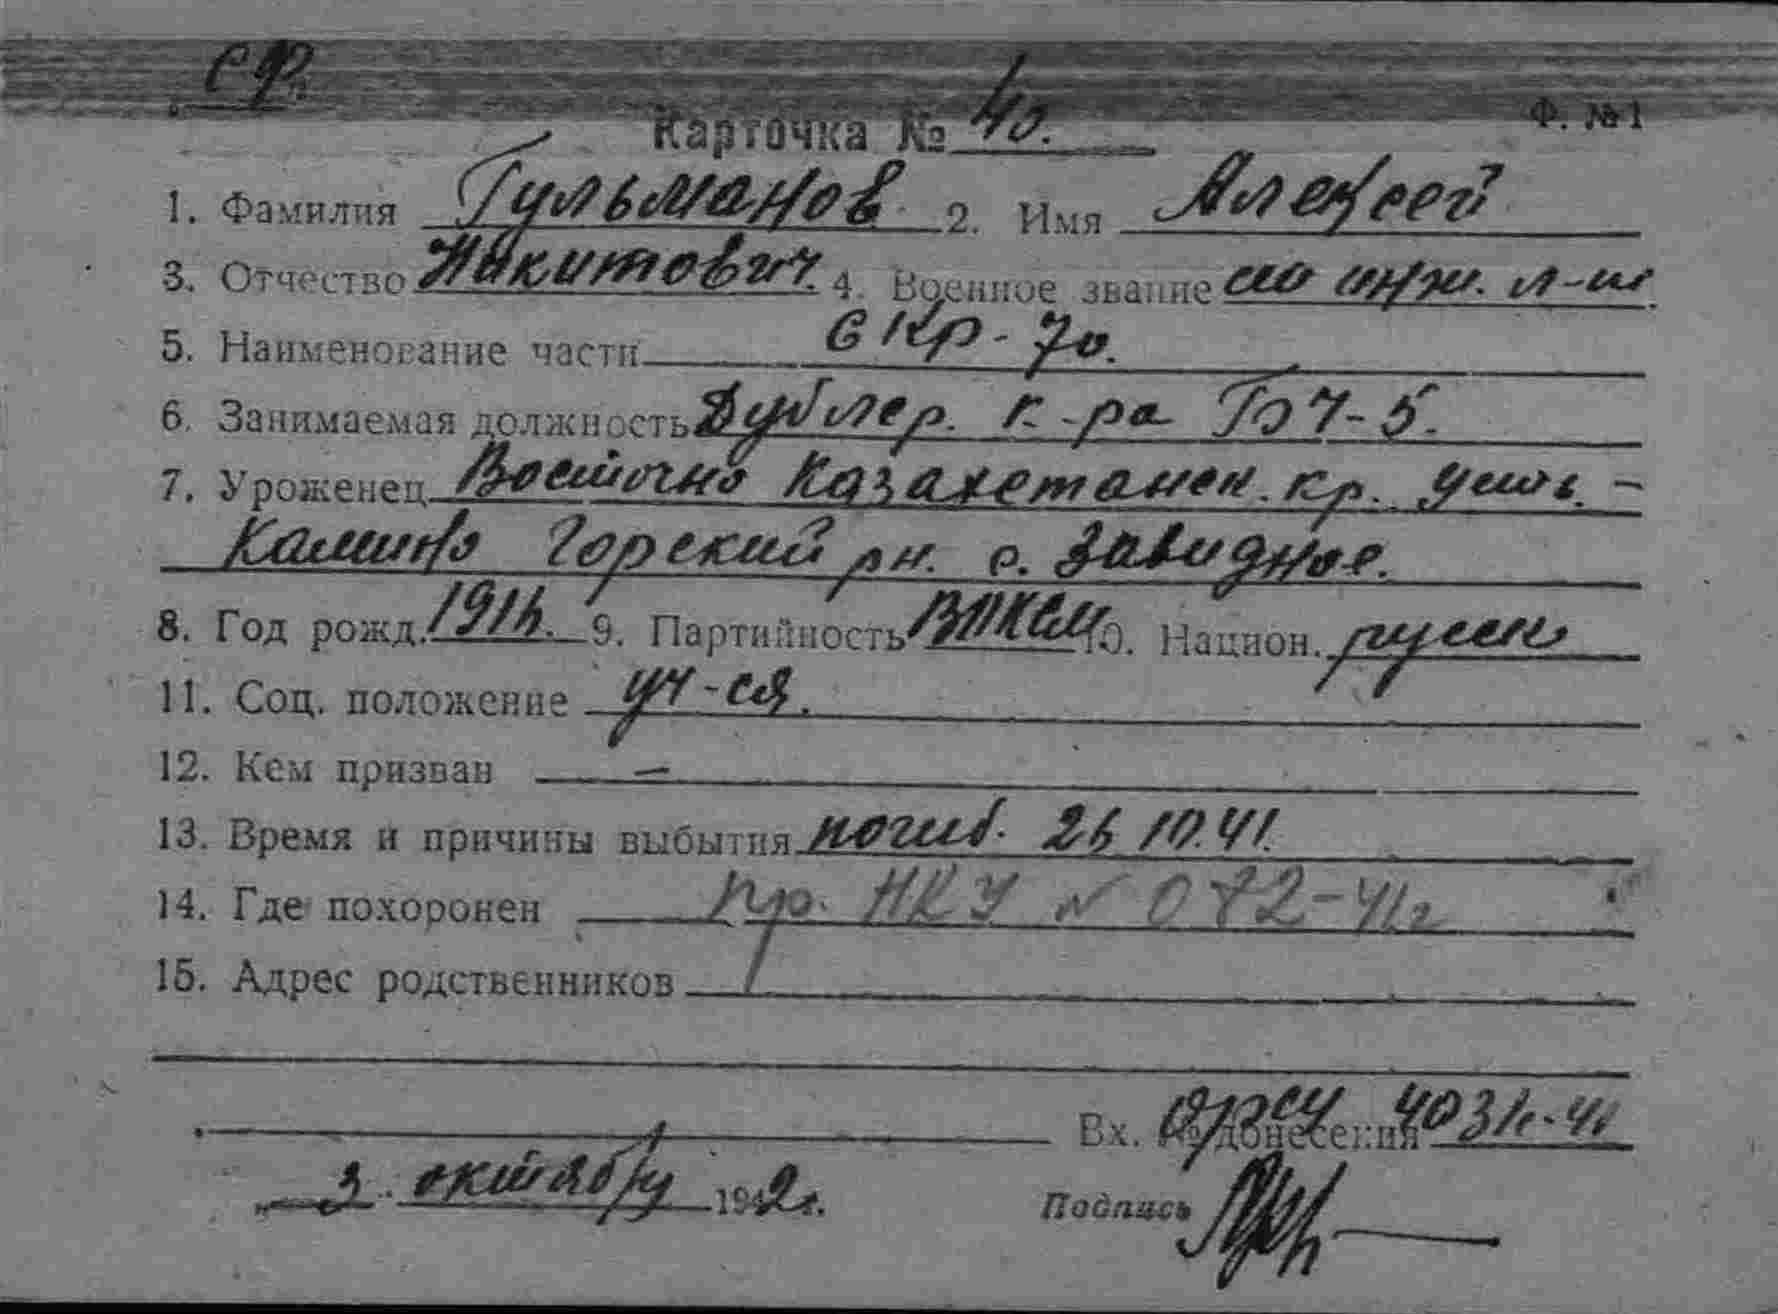 СФ.
Карточка № 40. Ф. № 1
1. Фамилия Гульманов 2. Имя Алексей
3. Отчество Никитович. 4. Военное звание инж. л-т.
5. Наименование части СКР-70.
6. Занимаемая должность Дублер. к-ра БЧ-5.
7. Уроженец Восточно Казахстанск. кр. Усть-
Камино Горский рн. с. Завидное.
8. Год рожд. 1914. 9. Партийность ВЛКСМ 10. Национ. русск
11. Соц. положение уч-ся.
12. Кем призван —
13. Время и причины выбытия погиб. 26.10.41.
14. Где похоронен пр. НКУ № 072-41г
15. Адрес родственников
Вх. № донесения ОРСУ
„ 3. октября 1942г.
Подпись